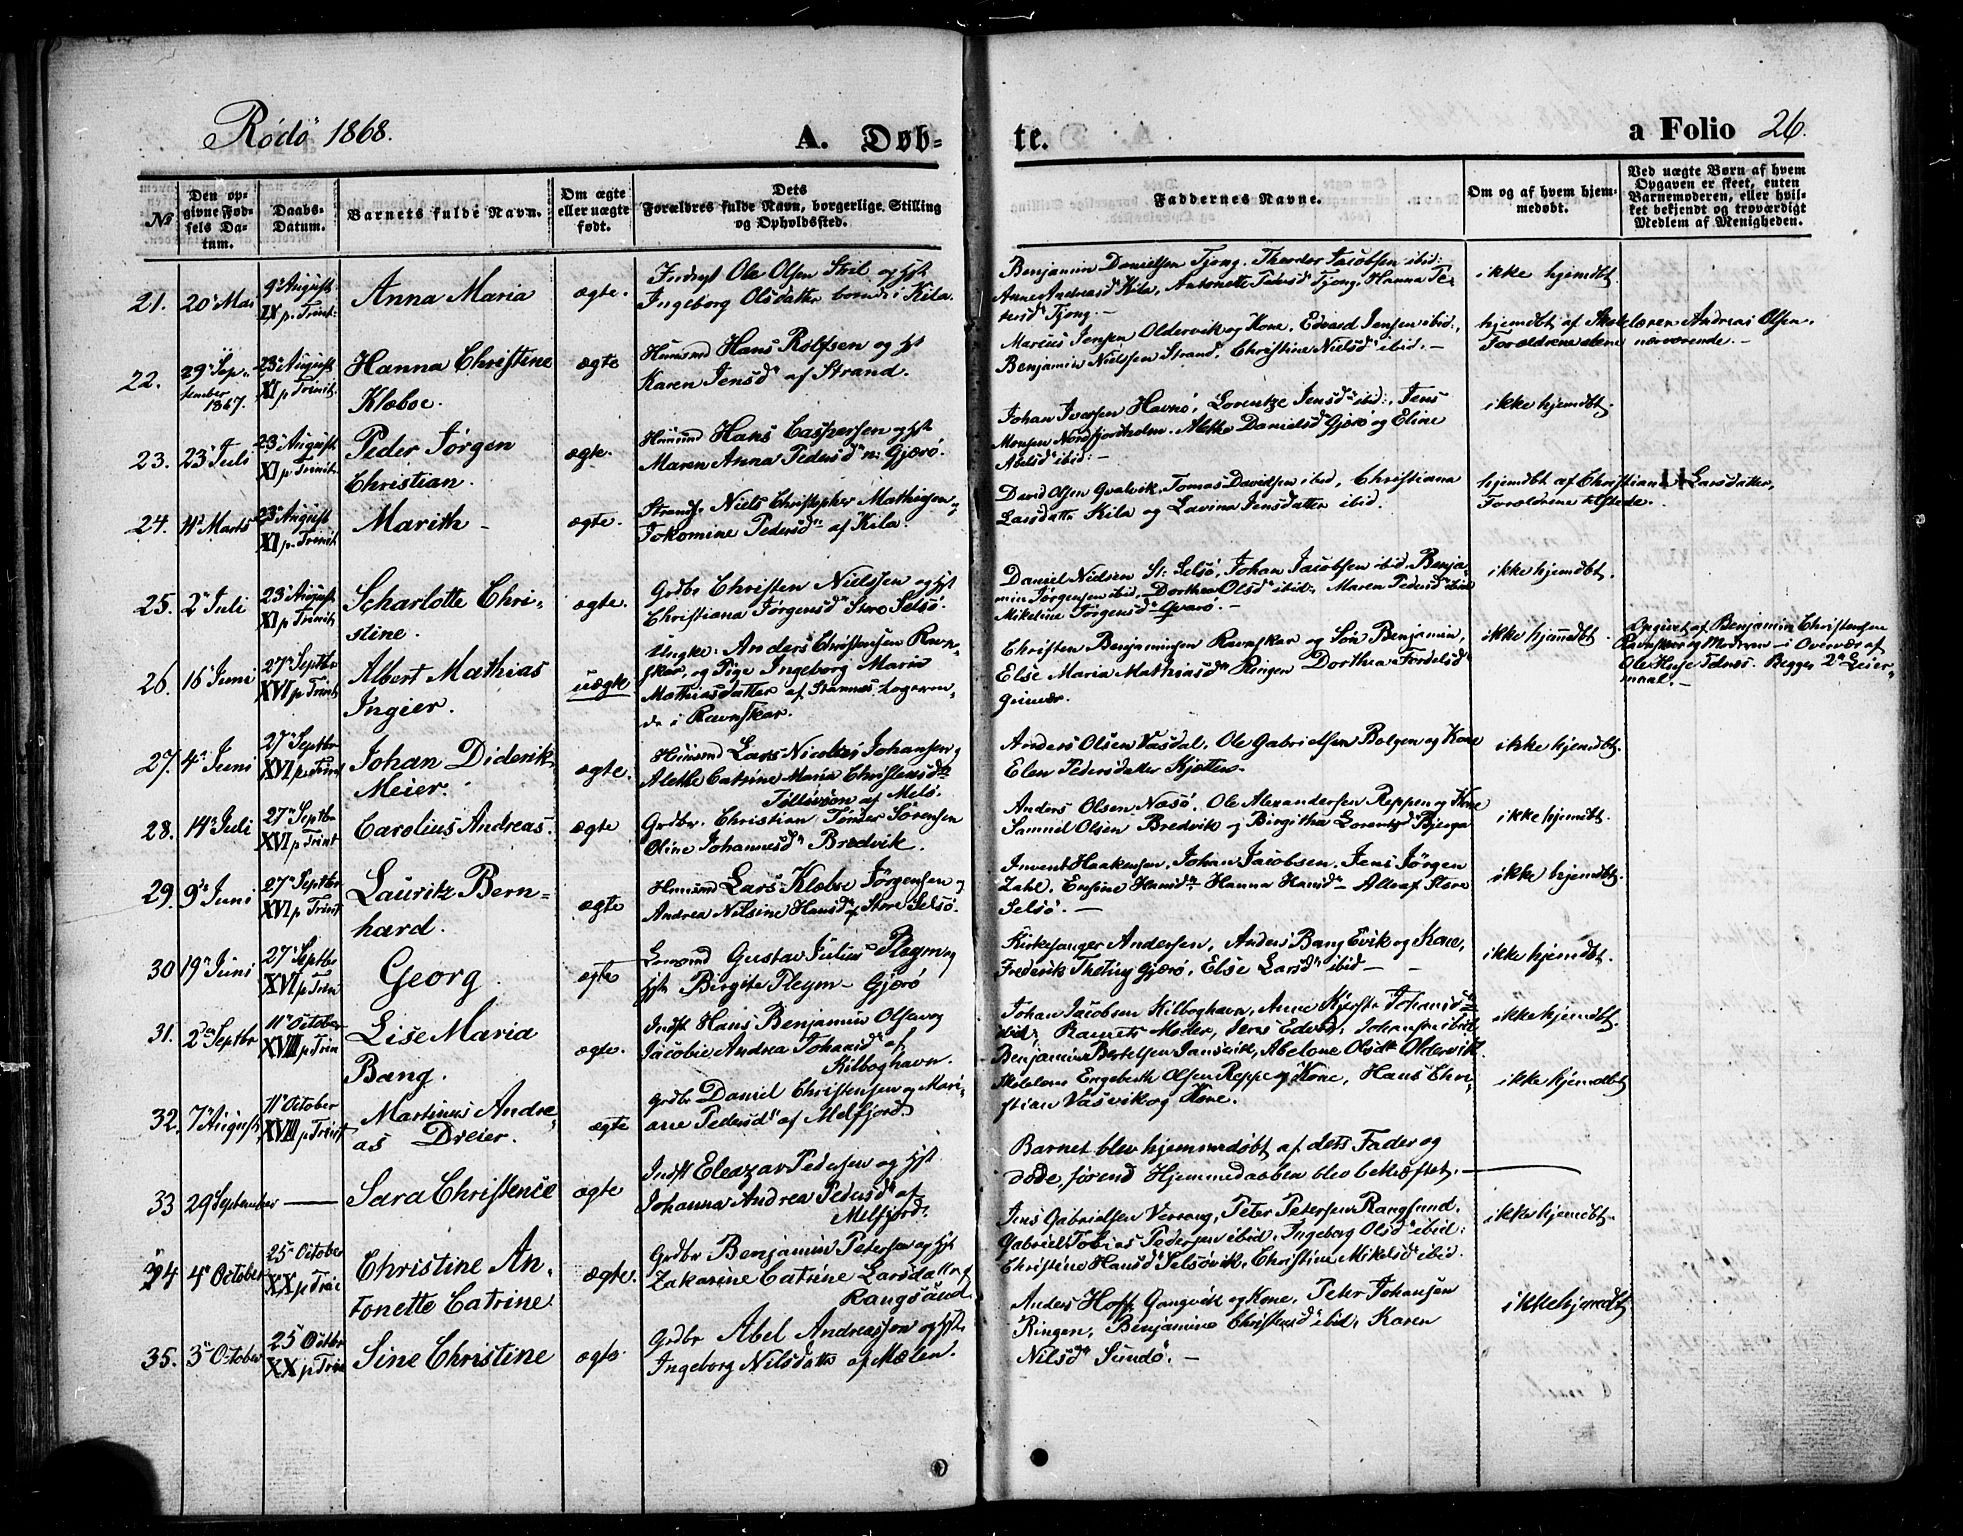 Rödö 1868.
A. Døb-
te.
a Folio 26.
No
Den opgivne Fødsels Datum.
Daabs-Datum.
Barnets fulde Navn.
Om ægte eller uægte født.
Dets Forældres fulde Navn, borgerlige Stilling og Opholdssted.
Faddernes Navne.
Om og af hvem hjemmedøbt.
Ved uægte Børn af hvem Opgaven er skeet, enten Barnemoderen, eller hvilket bekjendt og troværdigt Medlem af Menigheden.
21. 20 Mai 9 August IX p. Trinit: Anna Maria ægte. Ole Olsen og Hst Ingeborg Olsdatter i Kila.
Benjamin Danielsen Tjong. Theodor Jacobsen ibid:
Anne Andreasd Kila, Antonette Pedersd Tjong, Hanna Pedersd Tjong.— ikke hjemdbt
22. 29 September 1867. 23 August XI p. Trinit. Hanna Christine Klæboe. ægte Huusmd Hans Rolfsen og Hst Karen Jensd af Strand.
Marius Jensen Oldervik og Kone, Edvard Jensen ibid:,
Benjamin Nielsen Strand, Christine Nielsd ibid.—
hjemdbt af Skolelæreren Andreas Olsen.
Forældrene alene nærværende.—
23. 23 Juli 23 August XI p. Trinit. Peder Jørgen Christian. ægte. Huusmd Hans Caspersen og Hst Maren Anna Pedersd Gjærö.
Johan Iversen Havnö, Lorentze Jensd ibid:, Jens
Monsen Nordfjordholm. Alethe Danielsd Gjerö og Eline
Abelsd ibid:— ikke hjemdbt.
24. 4 Marts 23 August XI p. Trinit. Marith— ægte. Niels Christopher Mathiasen og Jokomine Pedersd af Kila.
David Olsen Qvalvik, Tomas Davidsen ibid, Christiana
Larsdatter Kila og Lavina Jensdatter ibid.
hjemdbt af Christiana Larsdatter,
Forældrene tilstede.
25. 2 Juli 23 August XI p. Trinit. Scharlotte Christine. ægte. Grdbr Christen Nielssen og Hst Christiana Jörgensd Store Selsö.
Daniel Nielsen St: Selsö, Johan Jacobsen ibid. Benjamin
Jörgensen ibid, Dorthea Olsd ibid:. Maren Pedersd ibid
Mikeline Jörgensd Qvarö.— ikke hjemdbt.
26. 16 Juni 27 Septbr XVI p. Trinit Albert Mathias Ingier. uægte Ungke: Anders Christensen Ravnskar, og Pige Ingeborg Maria Mathiasdatter af Stannes. Logerende i Ravnskar.
Christen Benjaminsen Ravnskar og Sön Benjamin,
Else Maria Mathiasd Ringen Dorthea Fordelsd
Grimer. ikke hjemmedbt.
Opgivet af Benjamin Christensen
Ravnskar og Moderen— i Overvær af
Ole Begges 2de Leiermaal.—
27. 4 Juni 27 Septbr XVI p. Trinit Johan Diderik Meier. ægte. Huusmd Lars Nicolai Johansen og Alethe Catrine Maria Christensd Tollevsön af Melö.
Anders Olsen Vasdal. Ole Gabrielsen Bolgen og Kone
Elen Pedersdatter Kjötten. ikke hjemdbt.
28. 14 Juli 27 Septbr XVI p. Trinit Carolius Andreas. ægte Grdbr. Christian Tönder Sörensen Oline Johannesd Bredvik.
Anders Olsen Næsö. Ole Alexandersen Reppen og Kone
Samuel Olsen Bredvik og Birgitha Lorentsd Bjerga ikke hjemdbt.
29. 9 Juni 27 Septbr XVI p. Trinit Lauritz Bernhard. ægte Huusmd Lars Klæboe Jörgensen og Andrea Nilsine Hansd af Store Selsö.
Haakensen, Johan Jacobsen, Jens Jörgen
Zahl, Ensine Hansd Hanna Hansd— Alle af Store
Selsö.— ikke hjemdbt.
30 19 Juni 27 Septbr XVI p Trin Georg. ægte Gustav Julius Pleym og Hst Birgite Pleym— Gjærö
Kirkesanger Andersen, Anders Bang Evik og Kone,
Frederik Thetting Gjærö, Else Larsd ibid— ikke hjemdbt.
31. 2 Septbr 11 October XVIII p Trin Lise Maria Bang. ægte. Indst Hans Benjamin Olsen og Jacobie Andrea Johansd af Kilboghavn.
Johan Jacobsen Kilboghavn, Anne Kjerste Johansd
ibid, Barnets Moder, Jens Edvard Johansen ibid,
Benjamin Bertelsen Jansvik, Abelone Olsdtr Oldervik. ikke hjemdbt.
32. 7 August 11 October XVIII p Trinit Martinus Andreas Dreier. ægte Grdbr Daniel Christensen og Mariane Pedersd af Melfjord.
Skolelærer Engebreth Olsen Reppe og Kone, Hans Christian
Vasvik og Kone. ikke hjemdbt
33 29 September — Sara Christence ægte Indst Eleazar Pedersen og Hst Johanna Andrea Pedersd af Melfjord.
Barnet blev hjemmedöbt af dets Fader og
döde, förend Hjemmedaaben blev bekræftet.—
34 4 October 25 October XX p Trin Christine Antonette Catrine ægte. Grdbr Benjamin Petersen og Hst Zakarine Catrine Larsdatter af Rangsund
Jens Gabrielsen Verrang, Peter Petersen Rangsund,
Gabriel Tobias Pedersen ibid, Ingeborg Olsd ibid:
Christine Hansd Selsövik, Christine Mikelsd ibid. ikke hjemdbt.
35. 3 October 25 Octbr XX p Trin Sine Christine ægte. Grdbr Abel Andreassen og Hst. Ingeborg Nilsdatter af Mælen.
Anders Hoff Gangvik og Kone, Peter Johansen
Ringen, Benjamine Christensd ibid, Karen
Nilsd Sundö.— ikke hjemdbt